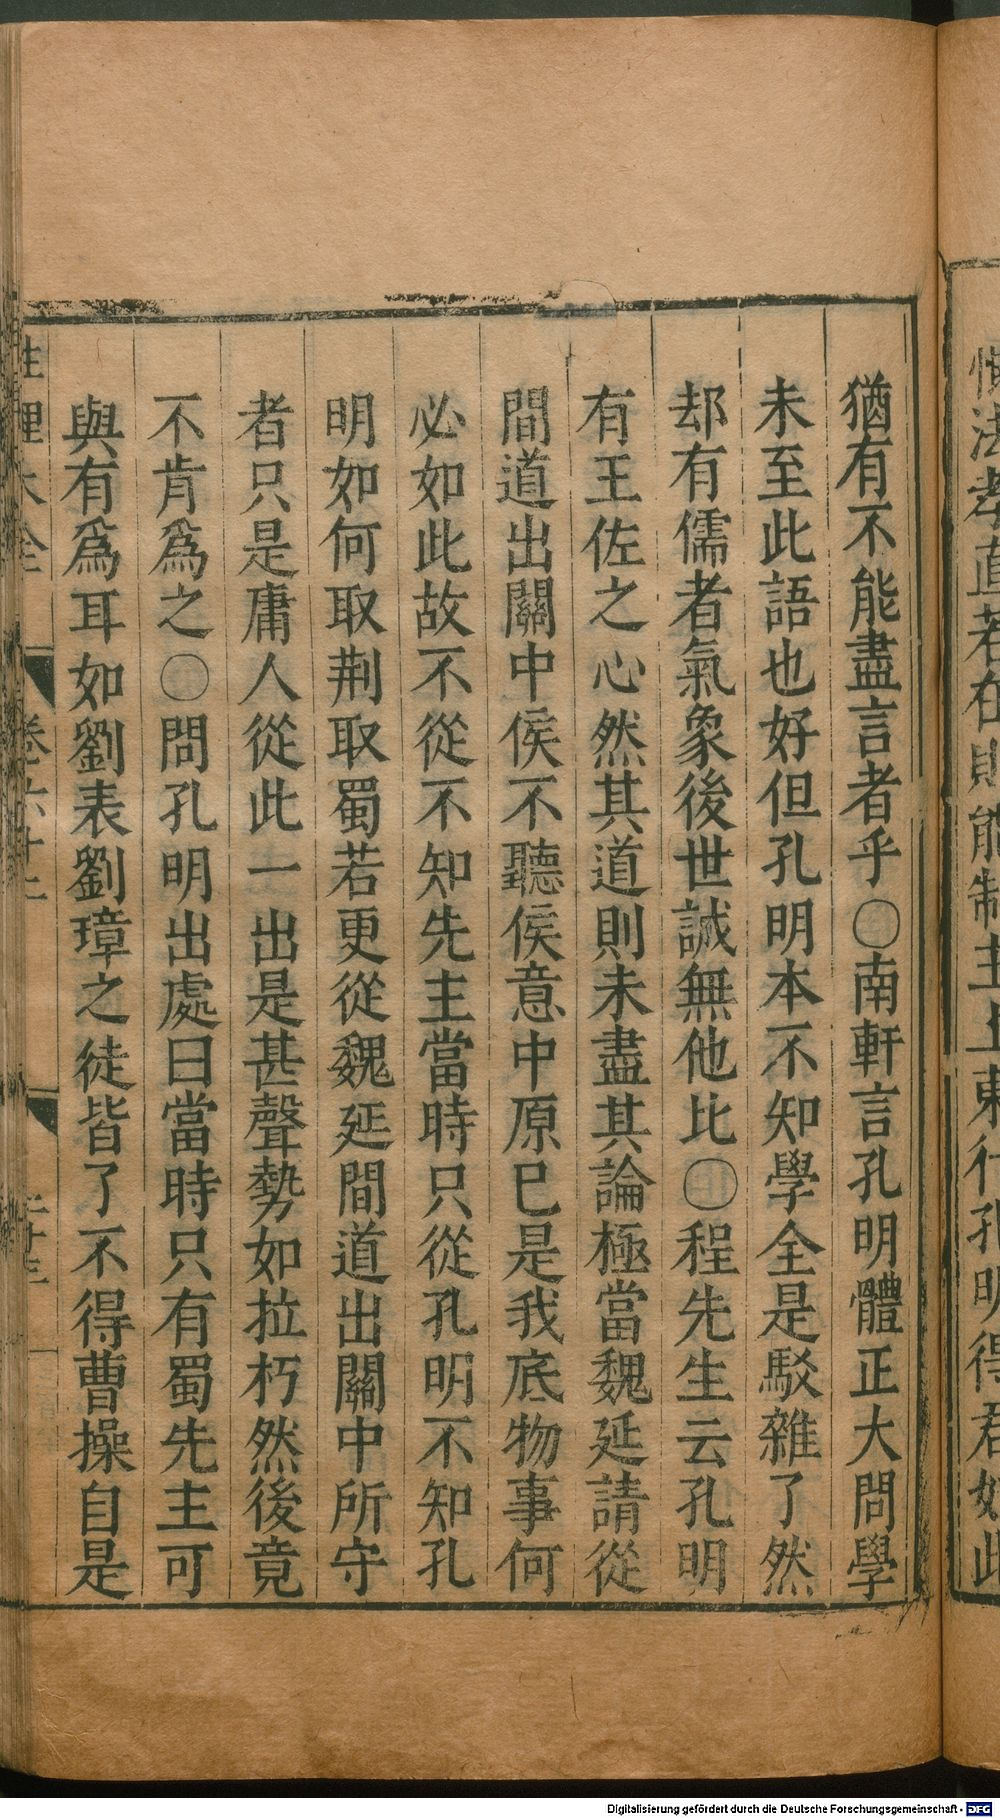 猶有不能盡言者乎〇南軒言孔明體正大問學
未至此語也好但孔明本不知學全是駁雜了然
却有儒者氣象後世誠無他比〇程先生云孔明
有王佐之心然其道則未盡其論極當魏延請從
間道出關中侯不聽侯意中原已是我底物事何
必如此故不從不知先主當時只從孔明不知孔
明如何取荆取蜀若更從魏延間道出關中所守
者只是庸人從此一出是甚聲勢如拉朽然後竟
不肯爲之〇問孔明出處曰當時只有蜀先主可
與有爲耳如劉表劉璋之徒皆了不得曹操自是
性理大全
法孝直若在則能制主上東行孔明得君如此
Digitalisierung gefördert durch die Deutsche Forschungsgemeinschaft - DFG